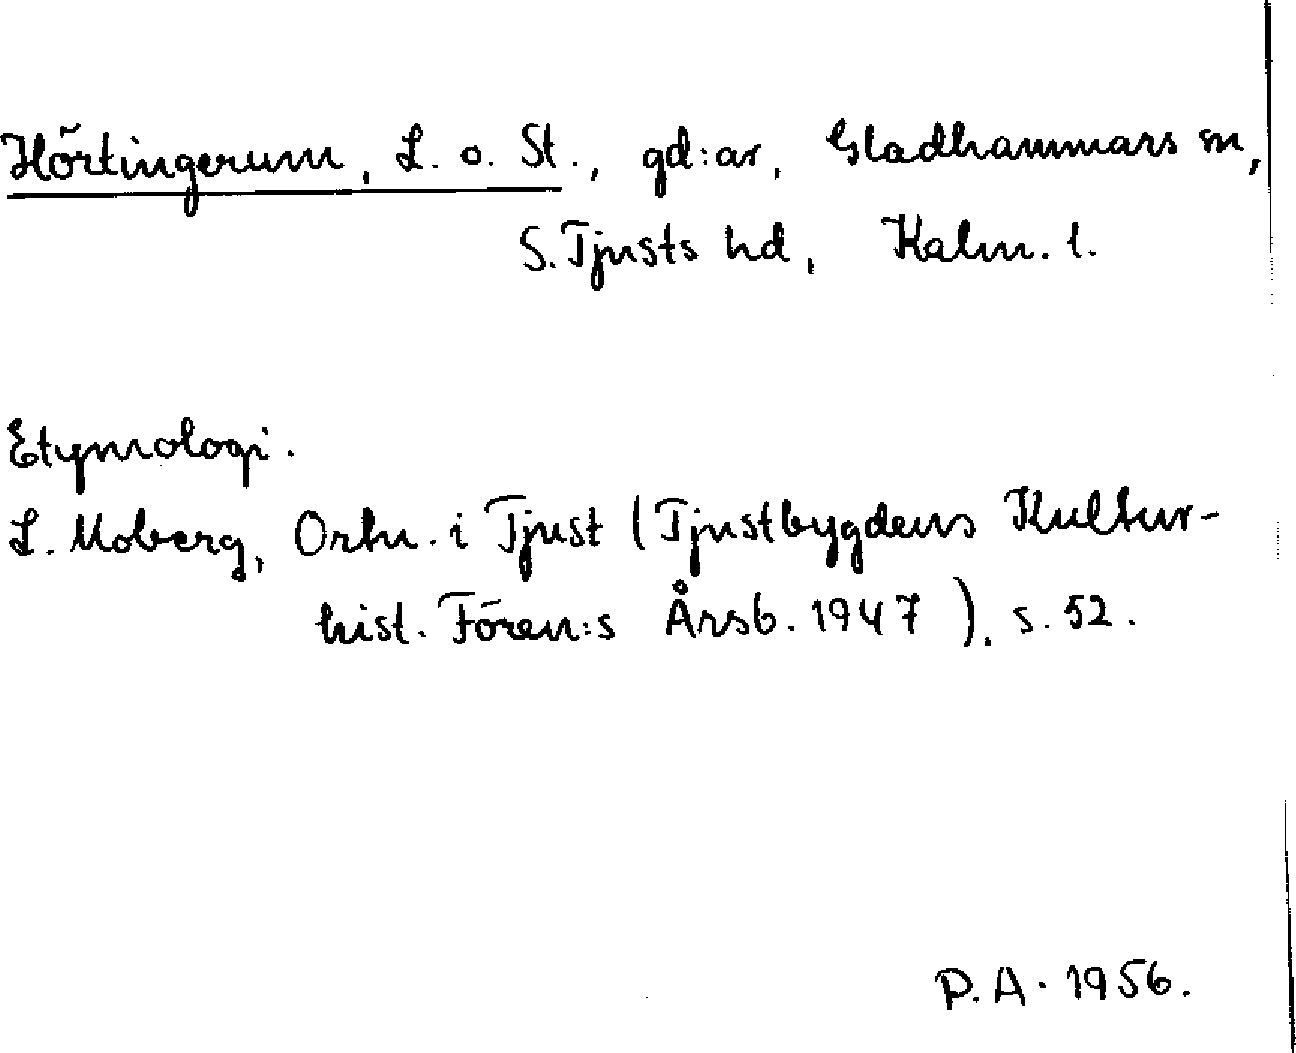 Hörtingerum, L. o. St., gd:ar, Gladhammars sn,
S. Tjusts hd, Kalm. l.
Etymologi.
L. Moberg, Ortn. i Tjust (Tjustbygdens Kultur-
hist. Fören:s Årsb. 1947), s. 52.
P.A. 1956.